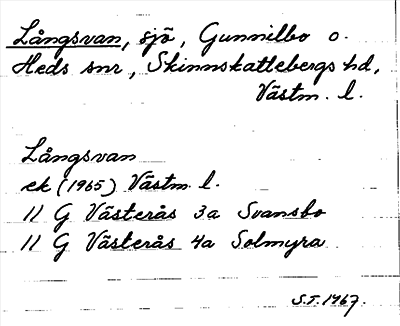 Långsvan, sjö, Gunnilbo o.
Heds snr, Skinnskattebergs hd,
Västm. l.
Långsvan
ek (1965) Västm. l.
11 G Västerås 3a Svansbo
11 G Västerås 4a Solmyra
S.T. 1967.